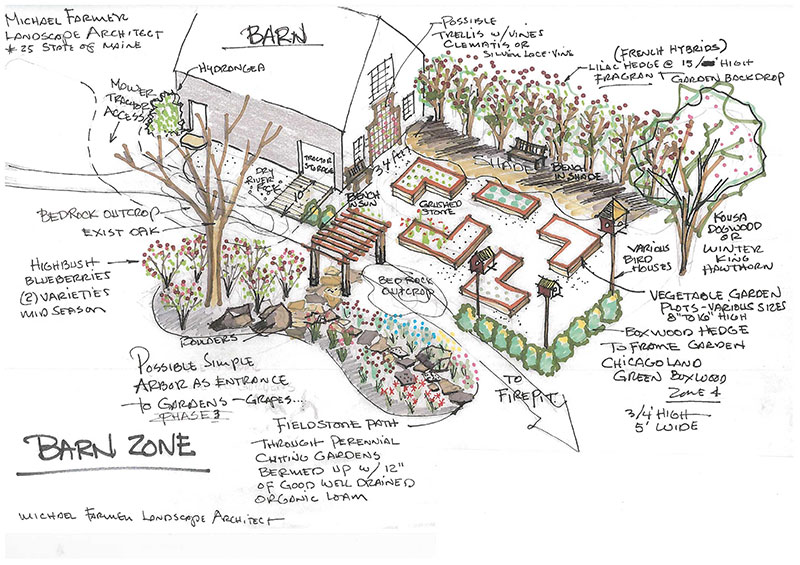 Michael Farmer
Landscape Architect
#25 State of Maine
BARN
Possible
Trellis w/ vines
Clematis or
Silver Lace Vine
(French Hybrids)
Lilac Hedge @ 15' High
Fragrant Garden Backdrop
Hydrangea
Mower
Tractor
Access
Tractor
Storage
Dry
River
Rock
10'
3/4 ft
Shade
Bench
in Shade
Bench
in Sun
Crushed
Stone
Bedrock Outcrop
Exist Oak
Highbush
Blueberries
(2) Varieties
Mid Season
Boulders
Bedrock
Outcrop
Various
Bird
Houses
Kousa
Dogwood
or
Winter
King
Hawthorn
Vegetable Garden
Plots - Various Sizes
8" to 10" High
Boxwood Hedge
To Frame Garden
Chicagoland
Green Boxwood
Zone 4
3/4' High
5' Wide
To
Firepit
Possible Simple
Arbor as Entrance
to Gardens - Grapes...
Phase 3
Fieldstone Path
Through Perennial
Cutting Gardens
Bermed up w/ 12"
of Good Well Drained
Organic Loam
Barn Zone
Michael Farmer Landscape Architect